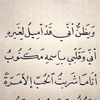 ويظن أني قد أميل لغيره
أني وقلبي باسمه مكتوب
أنا ما شربت الحب إلا مرة